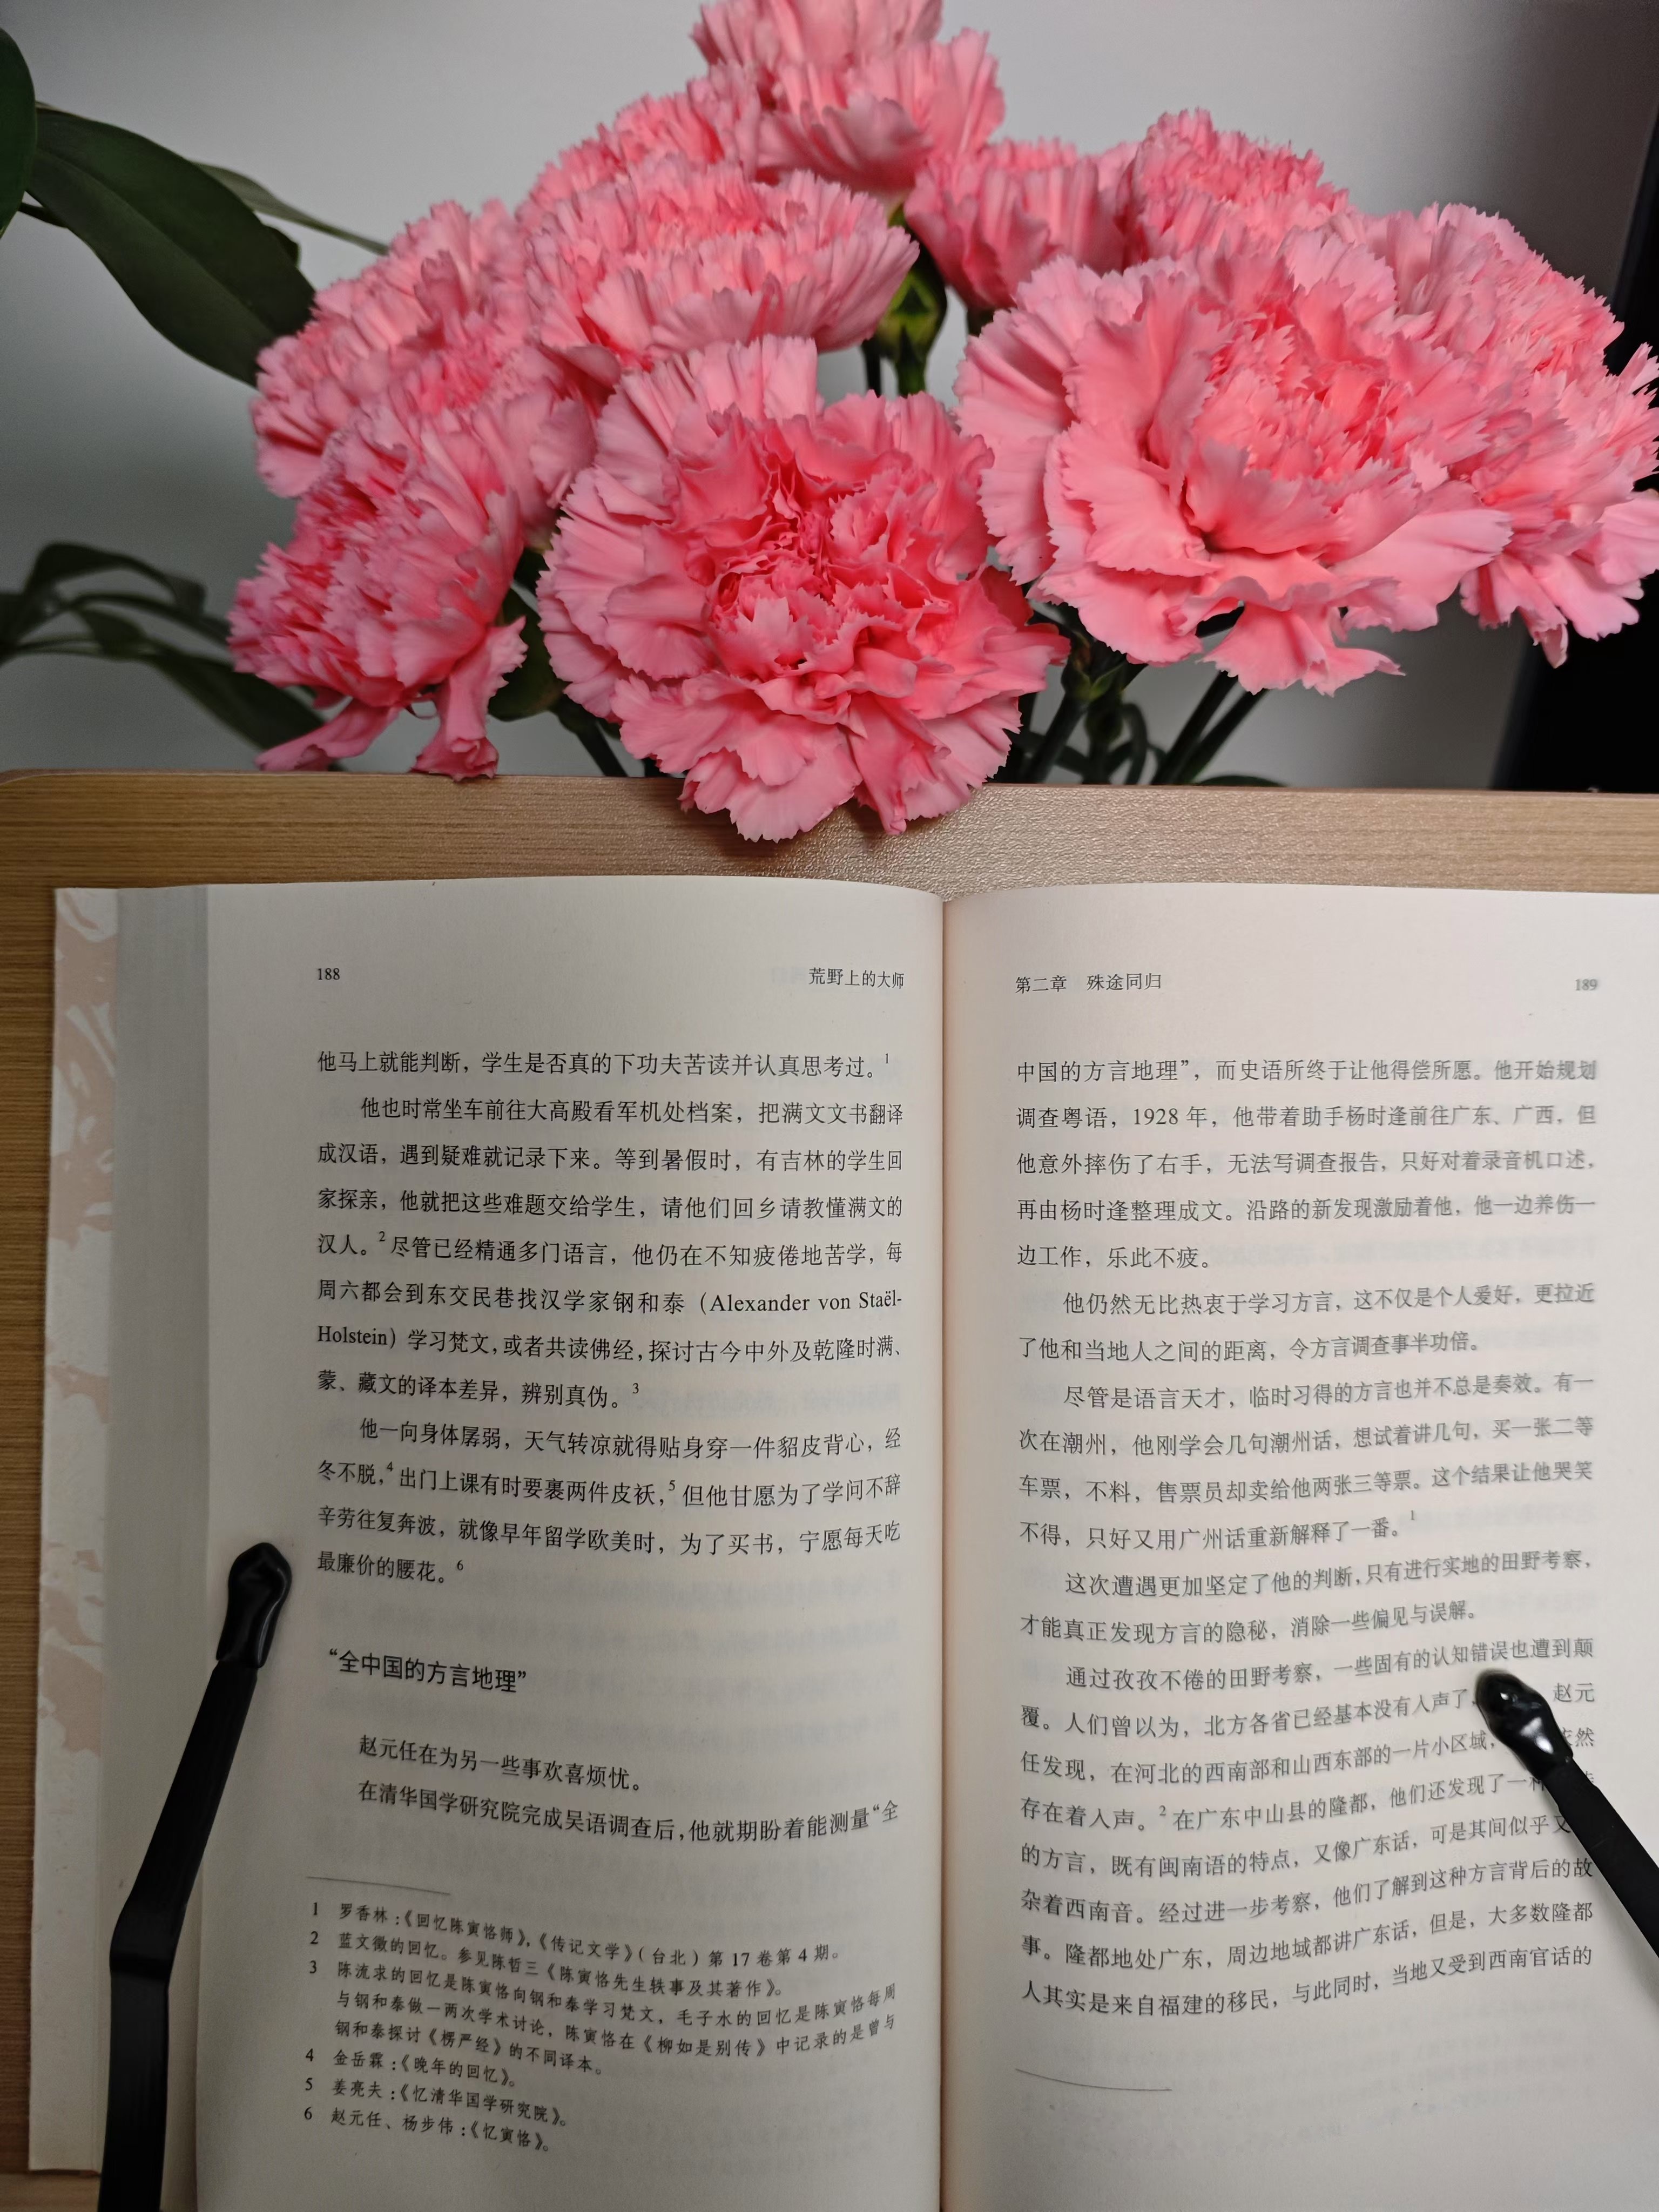 188
荒野上的大师
他马上就能判断，学生是否真的下功夫苦读并认真思考过。1
他也时常坐车前往大高殿看军机处档案，把满文文书翻译
成汉语，遇到疑难就记录下来。等到暑假时，有吉林的学生回
家探亲，他就把这些难题交给学生，请他们回乡请教懂满文的
汉人。2 尽管已经精通多门语言，他仍在不知疲倦地苦学，每
周六都会到东交民巷找汉学家钢和泰（Alexander von Staël-
Holstein）学习梵文，或者共读佛经，探讨古今中外及乾隆时满、
蒙、藏文的译本差异，辨别真伪。3
他一向身体孱弱，天气转凉就得贴身穿一件貂皮背心，经
冬不脱，4 出门上课有时要裹两件皮袄，5 但他甘愿为了学问不辞
辛劳往复奔波，就像早年留学欧美时，为了买书，宁愿每天吃
最廉价的腰花。6
“全中国的方言地理”
赵元任在为另一些事欢喜烦忧。
在清华国学研究院完成吴语调查后，他就期盼着能测量“全
1 罗香林：《回忆陈寅恪师》，《传记文学》（台北）第 17 卷第 4 期。
2 蓝文徵的回忆。参见陈哲三《陈寅恪先生轶事及其著作》。
3 陈流求的回忆是陈寅恪向钢和泰学习梵文，毛子水的回忆是陈寅恪每周
与钢和泰做一两次学术讨论，陈寅恪在《柳如是别传》中记录的是曾与
钢和泰探讨《楞严经》的不同译本。
4 金岳霖：《晚年的回忆》。
5 姜亮夫：《忆清华国学研究院》。
6 赵元任、杨步伟：《忆寅恪》。
第二章 殊途同归
189
中国的方言地理”，而史语所终于让他得偿所愿。他开始规划
调查粤语，1928 年，他带着助手杨时逢前往广东、广西，但
他意外摔伤了右手，无法写调查报告，只好对着录音机口述，
再由杨时逢整理成文。沿路的新发现激励着他，他一边养伤一
边工作，乐此不疲。
他仍然无比热衷于学习方言，这不仅是个人爱好，更拉近
了他和当地人之间的距离，令方言调查事半功倍。
尽管是语言天才，临时习得的方言也并不总是奏效。有一
次在潮州，他刚学会几句潮州话，想试着讲几句，买一张二等
车票，不料，售票员却卖给他两张三等票。这个结果让他哭笑
不得，只好又用广州话重新解释了一番。1
这次遭遇更加坚定了他的判断，只有进行实地的田野考察，
才能真正发现方言的隐秘，消除一些偏见与误解。
通过孜孜不倦的田野考察，一些固有的认知错误也遭到颠
覆。人们曾以为，北方各省已经基本没有入声了， 赵元
任发现，在河北的西南部和山西东部的一片小区域， 然
存在着入声。2 在广东中山县的隆都，他们还发现了一种
的方言，既有闽南语的特点，又像广东话，可是其间似乎又
杂着西南音。经过进一步考察，他们了解到这种方言背后的故
事。隆都地处广东，周边地域都讲广东话，但是，大多数隆都
人其实是来自福建的移民，与此同时，当地又受到西南官话的